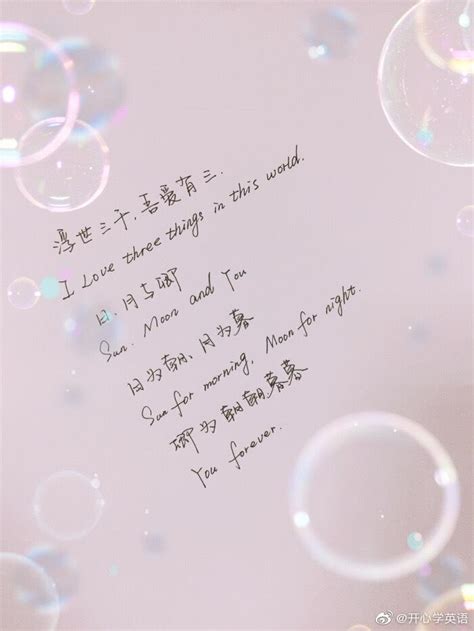 浮世三千，吾爱有三.
I Love three things in this world.
日、月与卿
Sun. Moon and You
日为朝、月为暮
Sun for morning, Moon for night.
卿为朝朝暮暮
You forever.
@开心学英语